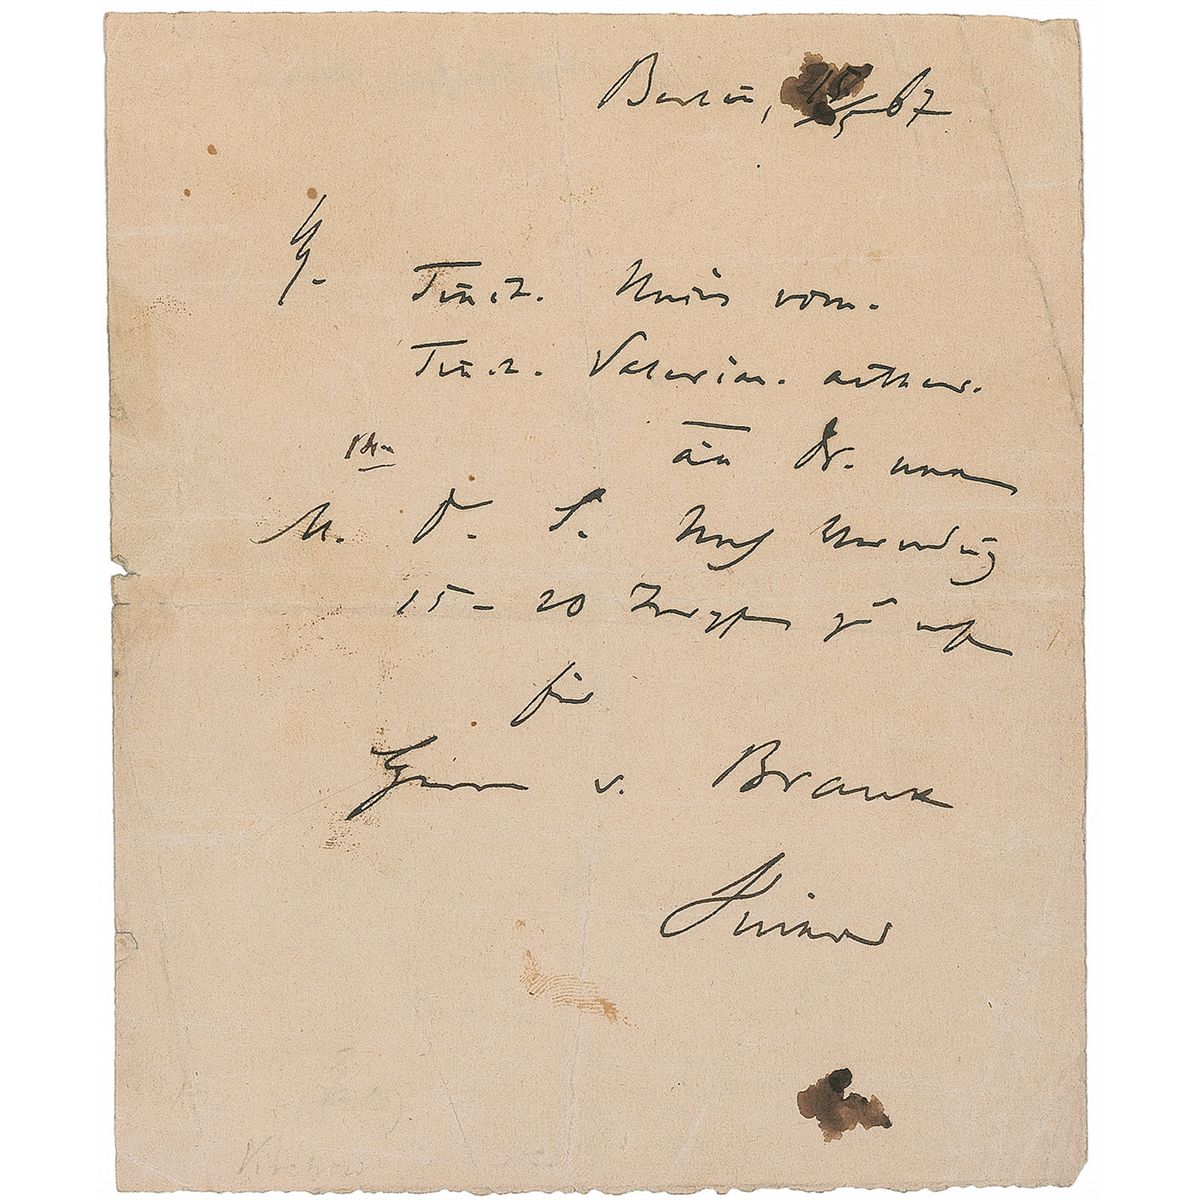 Berlin, 15/5 67
Tinct. Nucis vom.
Tinct. Valerian. aether.
āā Dr. unam
M. D. S. Nach Verordnung
15-20 Tropfen zu
für
Herrn v. Braun
Virchow
Virchow